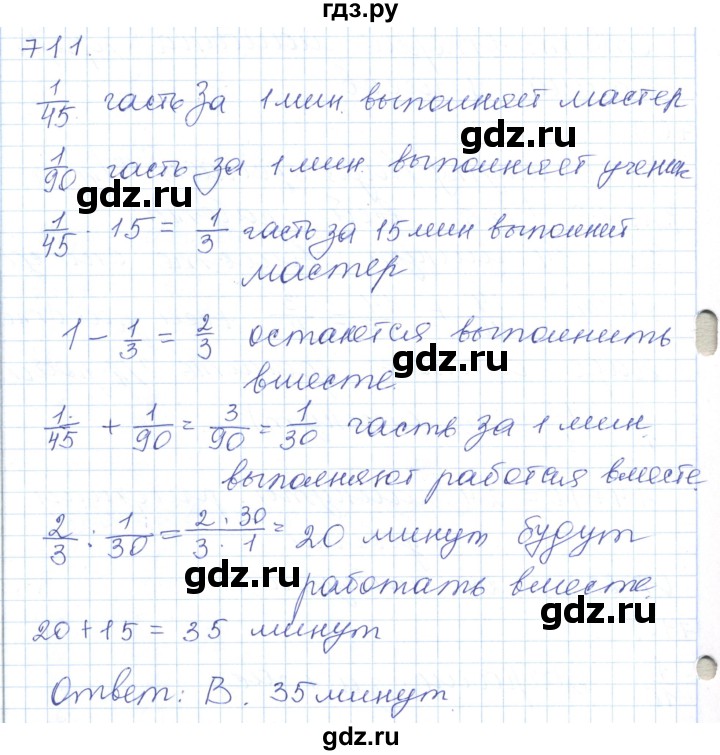 гдз.ру
711.
1/45 часть за 1 мин. выполняет мастер
gdz.ru
1/90 часть за 1 мин. выполняет ученик
gdz.ru
1/45 · 15 = 1/3 часть за 15 мин выполнит
мастер
1 - 1/3 = 2/3 останется выполнить
gdz.ru
вместе.
1/45 + 1/90 = 3/90 = 1/30 часть за 1 мин.
gdz.ru
выполняют работая вместе.
2/3 : 1/30 = 2·30/3·1 = 20 минут будут
gdz.ru
работать вместе.
20 + 15 = 35 минут
gdz.ru
Ответ: В. 35 минут
gdz.ru